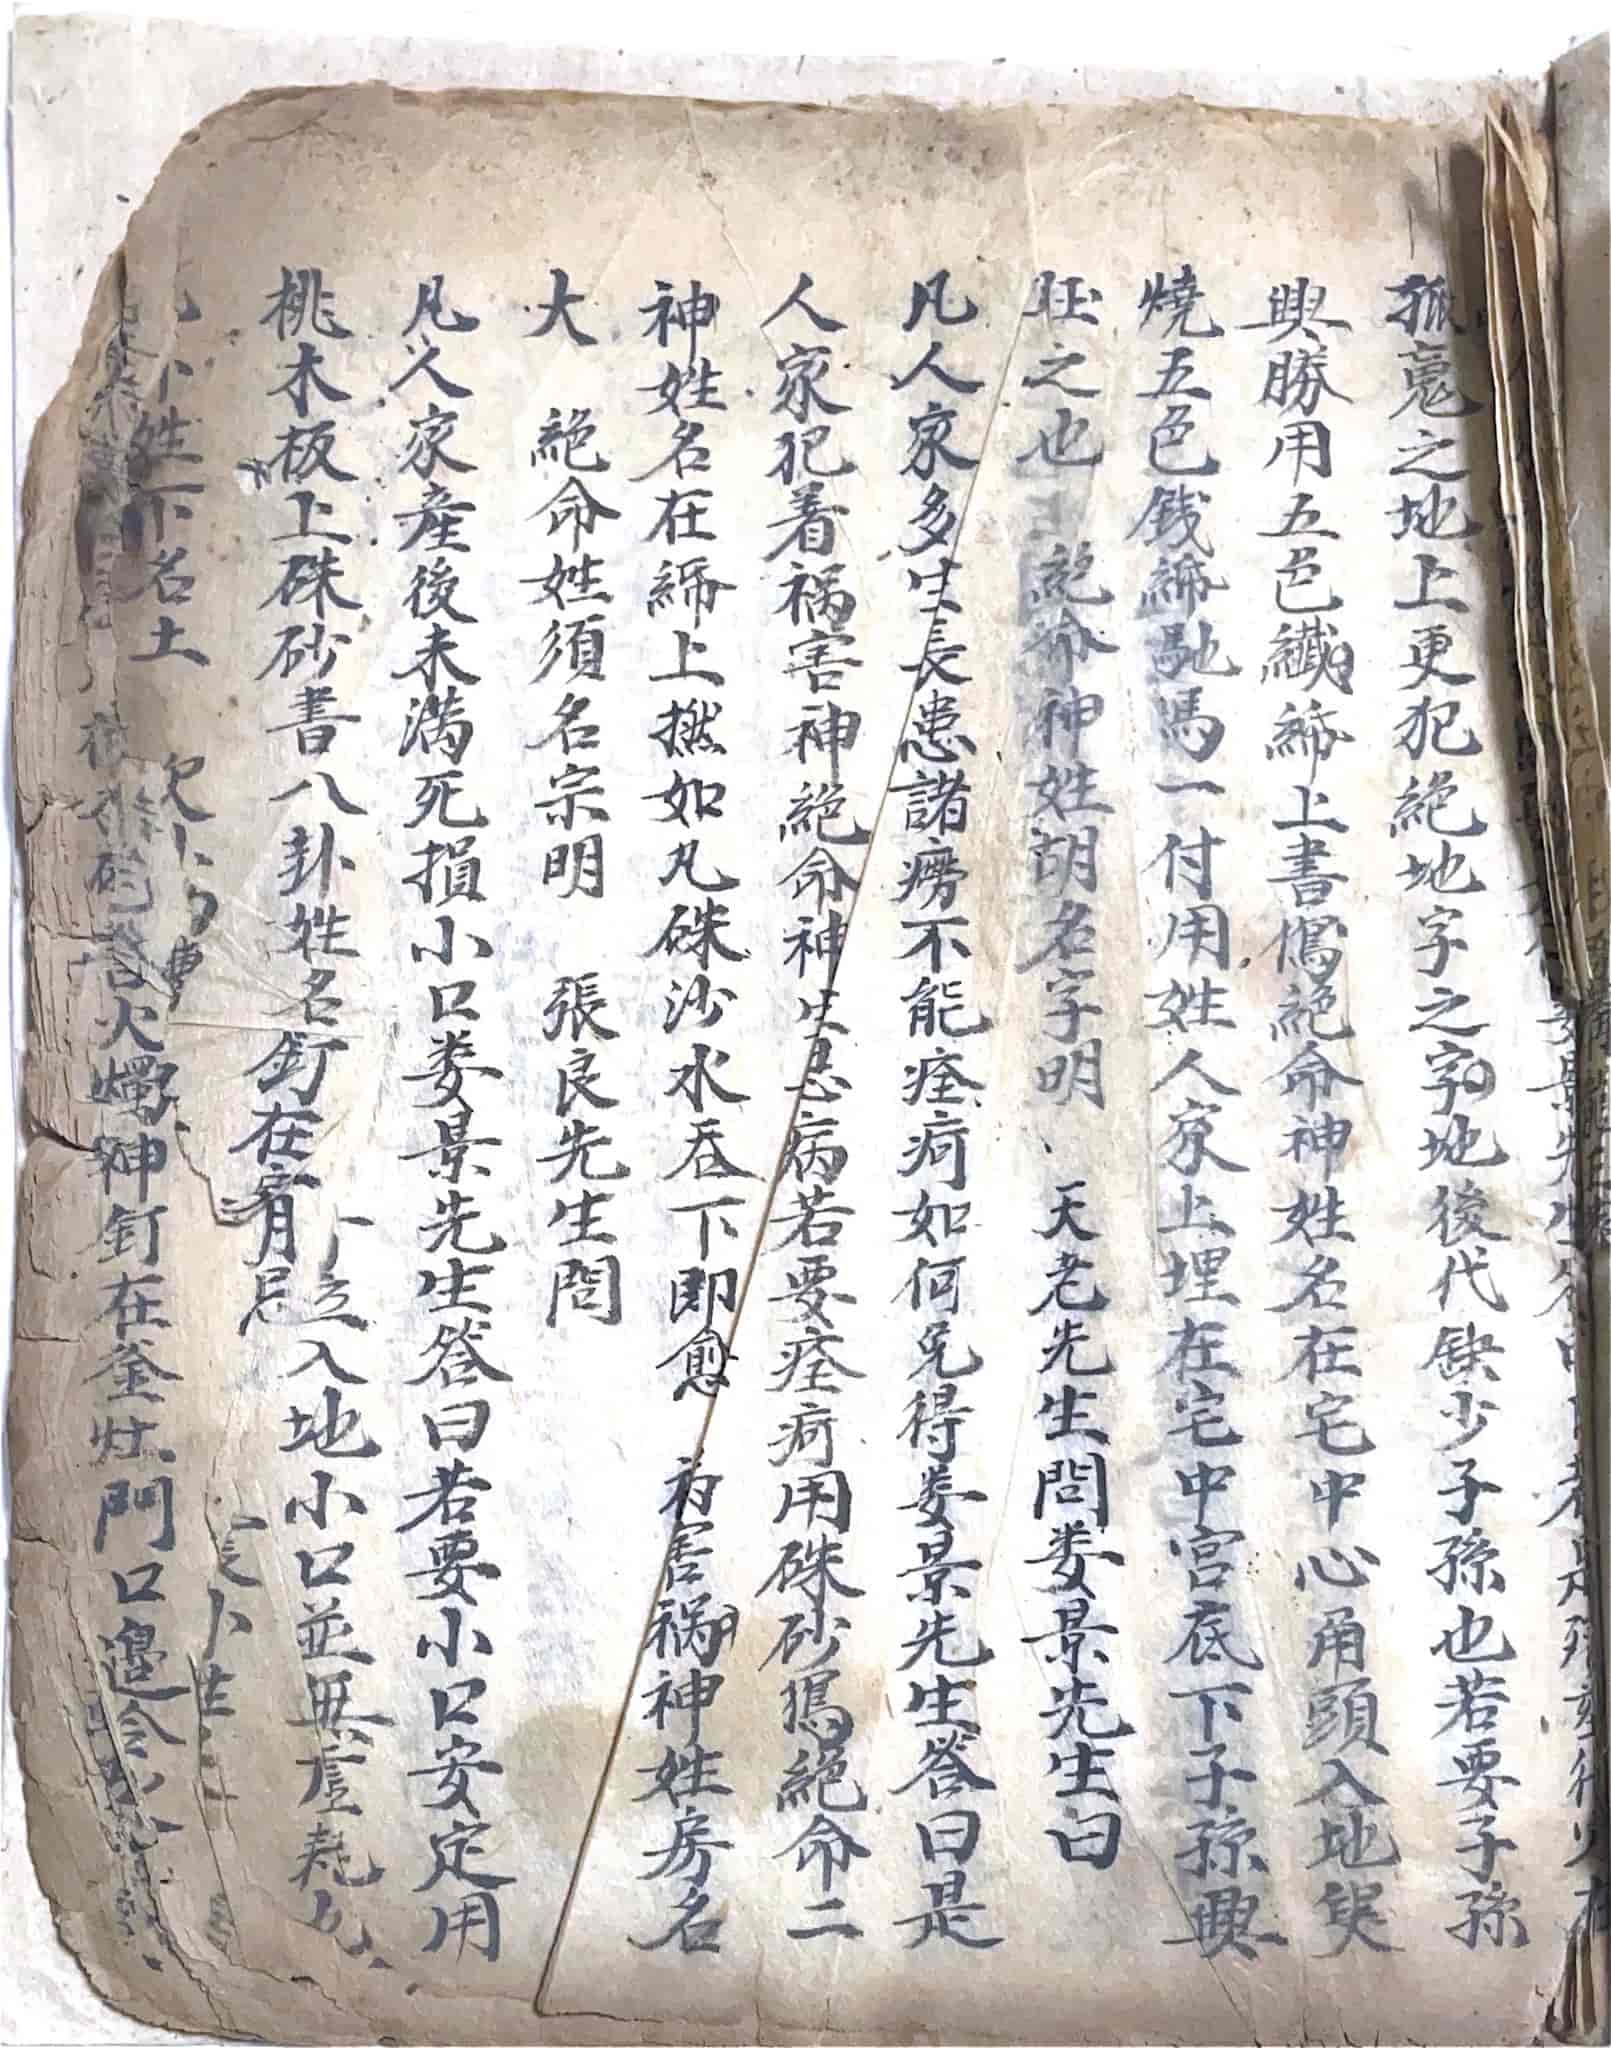 孤寡之地上更犯絕地字之字地後代缺少子孫也若要子孫
興勝用五色纖紙上書傌絕命神姓名在宅中心甬頭入地埋
燒五色錢紙馳馬一付用姓人家上埋在宅中宮底下子孫興
旺之也 絕命神姓胡名字明 天老先生問娄景先生曰
凡人家多生長患諸癆不能痊疴如何免得娄景先生答曰是
人家犯着禍害神絕命神生患病若要痊疴用硃砂寫絕命二
神姓名在紙上撚如凡硃沙水吞下即愈 害禍神姓房名
大 絕命姓須名宗明 張良先生問
凡人家產後未滿死損小口娄景先生答曰若要小口安定用
桃木板上硃砂書八卦姓名釘在 入地小口並無虛耗
卜姓下名土
火燭神釘在釜灶門口邊